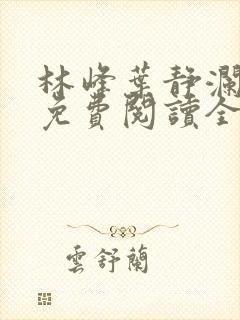 林峰葉静瀾
免費閱讀全
雲舒蘭